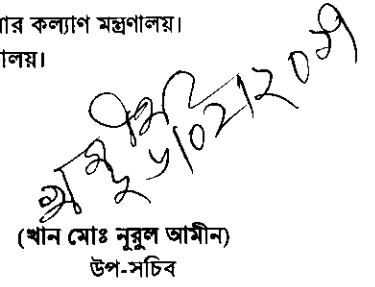 ার কল্যাণ মন্ত্রণালয়।
ালয়।
(খান মোঃ নূরুল আমীন)
উপ-সচিব